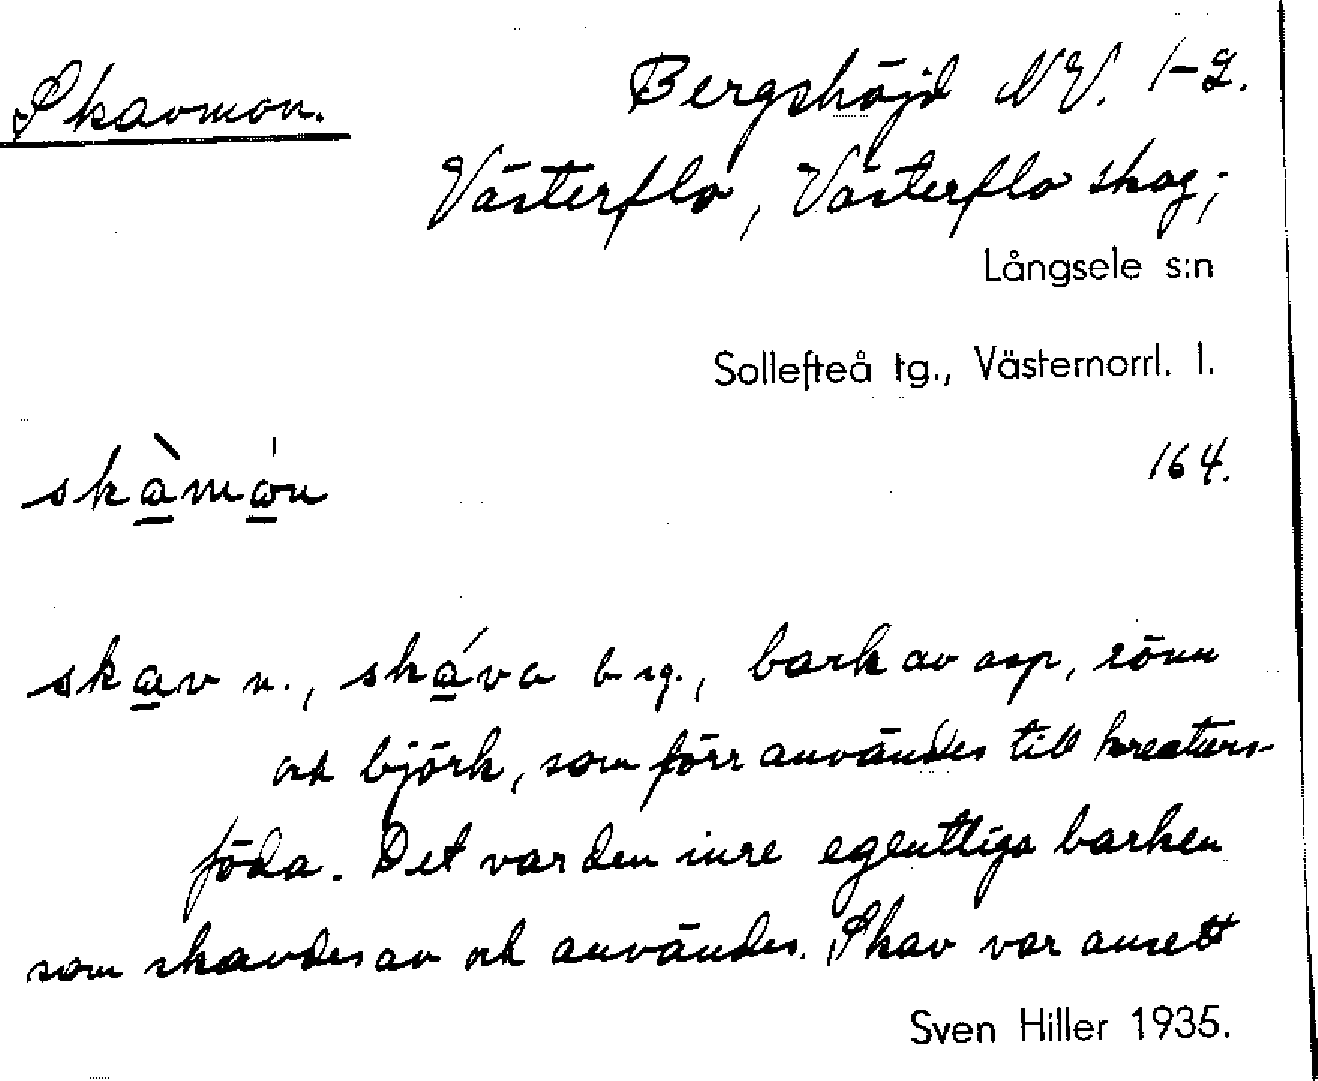 Skavmon.
Bergshöjd NV. 1-2.
Västerflo, Västerflo skog;
Långsele s:n
Sollefteå tg., Västernorrl. l.
164.
skàmón
skav n., skáva b sg., bark av asp, rönn
och björk, som förr användes till kreaturs-
föda. Det var den inre egentliga barken
som skavdes av och användes. Skav var ansett
Sven Hiller 1935.